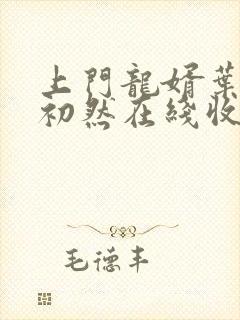 上門龍婿葉
初然在綫收
毛德丰